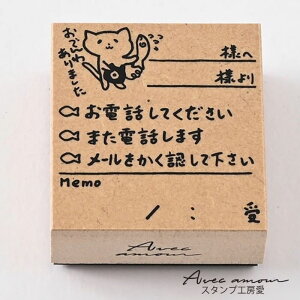 おでんわ
ありました
様へ
様より
お電話してください
また電話します
メールをかく認して下さい
Memo
/ : 受
Avec
amour
Avec amour
スタンプ工房愛